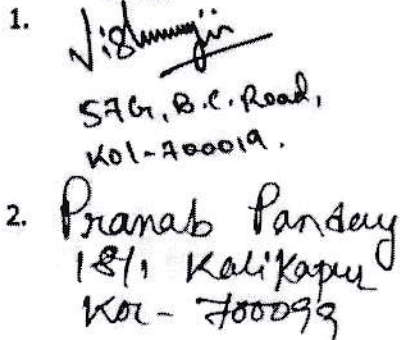 1.
57G, B.C. Road,
Kol-700019.
2. Pranab Pandey
18/1 Kalikapur
Kol- 700099